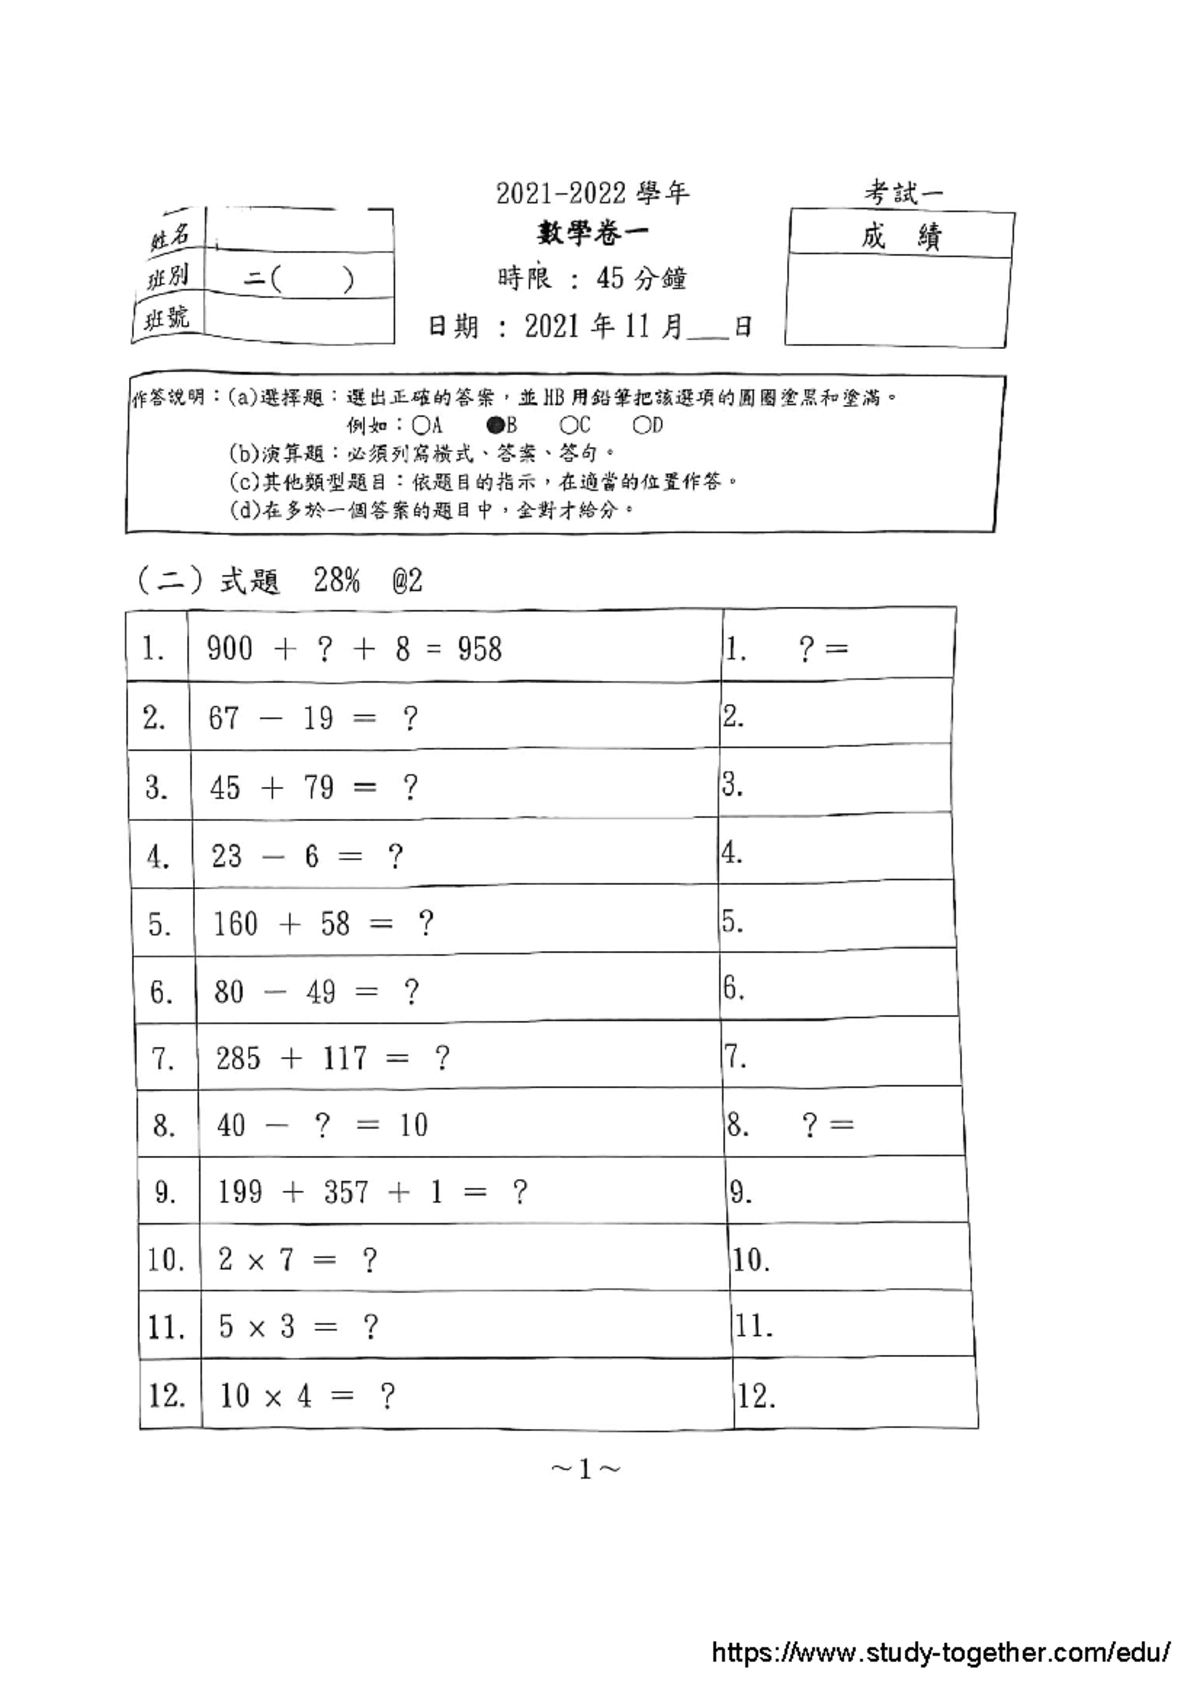 2021-2022 學年
考試一
姓名
數學卷一
成 績
班別 二( )
時限 : 45 分鐘
班號
日期 : 2021 年 11 月___日
作答說明：(a)選擇題：選出正確的答案，並 HB 用鉛筆把該選項的圓圈塗黑和塗滿。
例如：○A ●B ○C ○D
(b)演算題：必須列寫橫式、答案、答句。
(c)其他類型題目：依題目的指示，在適當的位置作答。
(d)在多於一個答案的題目中，全對才給分。
（二）式題 28% @2
1. 900 + ? + 8 = 958 1. ? =
2. 67 － 19 = ? 2.
3. 45 + 79 = ? 3.
4. 23 － 6 = ? 4.
5. 160 + 58 = ? 5.
6. 80 － 49 = ? 6.
7. 285 + 117 = ? 7.
8. 40 － ? = 10 8. ? =
9. 199 + 357 + 1 = ? 9.
10. 2 × 7 = ? 10.
11. 5 × 3 = ? 11.
12. 10 × 4 = ? 12.
~1~
https://www.study-together.com/edu/